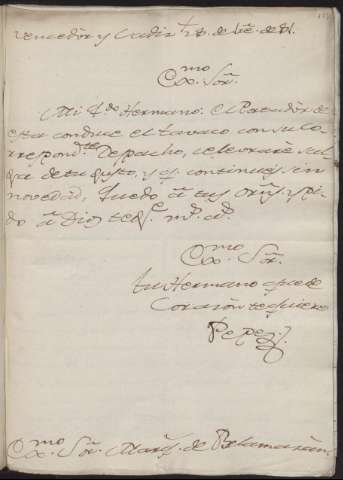 vencedor y Cadiz
Exmo. Sor.
Mi qdo. Hermano: el Portador de
esta conduce el tavaco con su co-
rrespondte. Despacho, celebraré sal-
ga de tu gusto, y qe. continues sin
novedad, quedo á tus ordns. y pi-
do á Dios te ge. ms. as.
Exmo. Sor.
tu Hermano que de
Corazon te quiere
Pepe
Exmo. Sor. Marqs. de